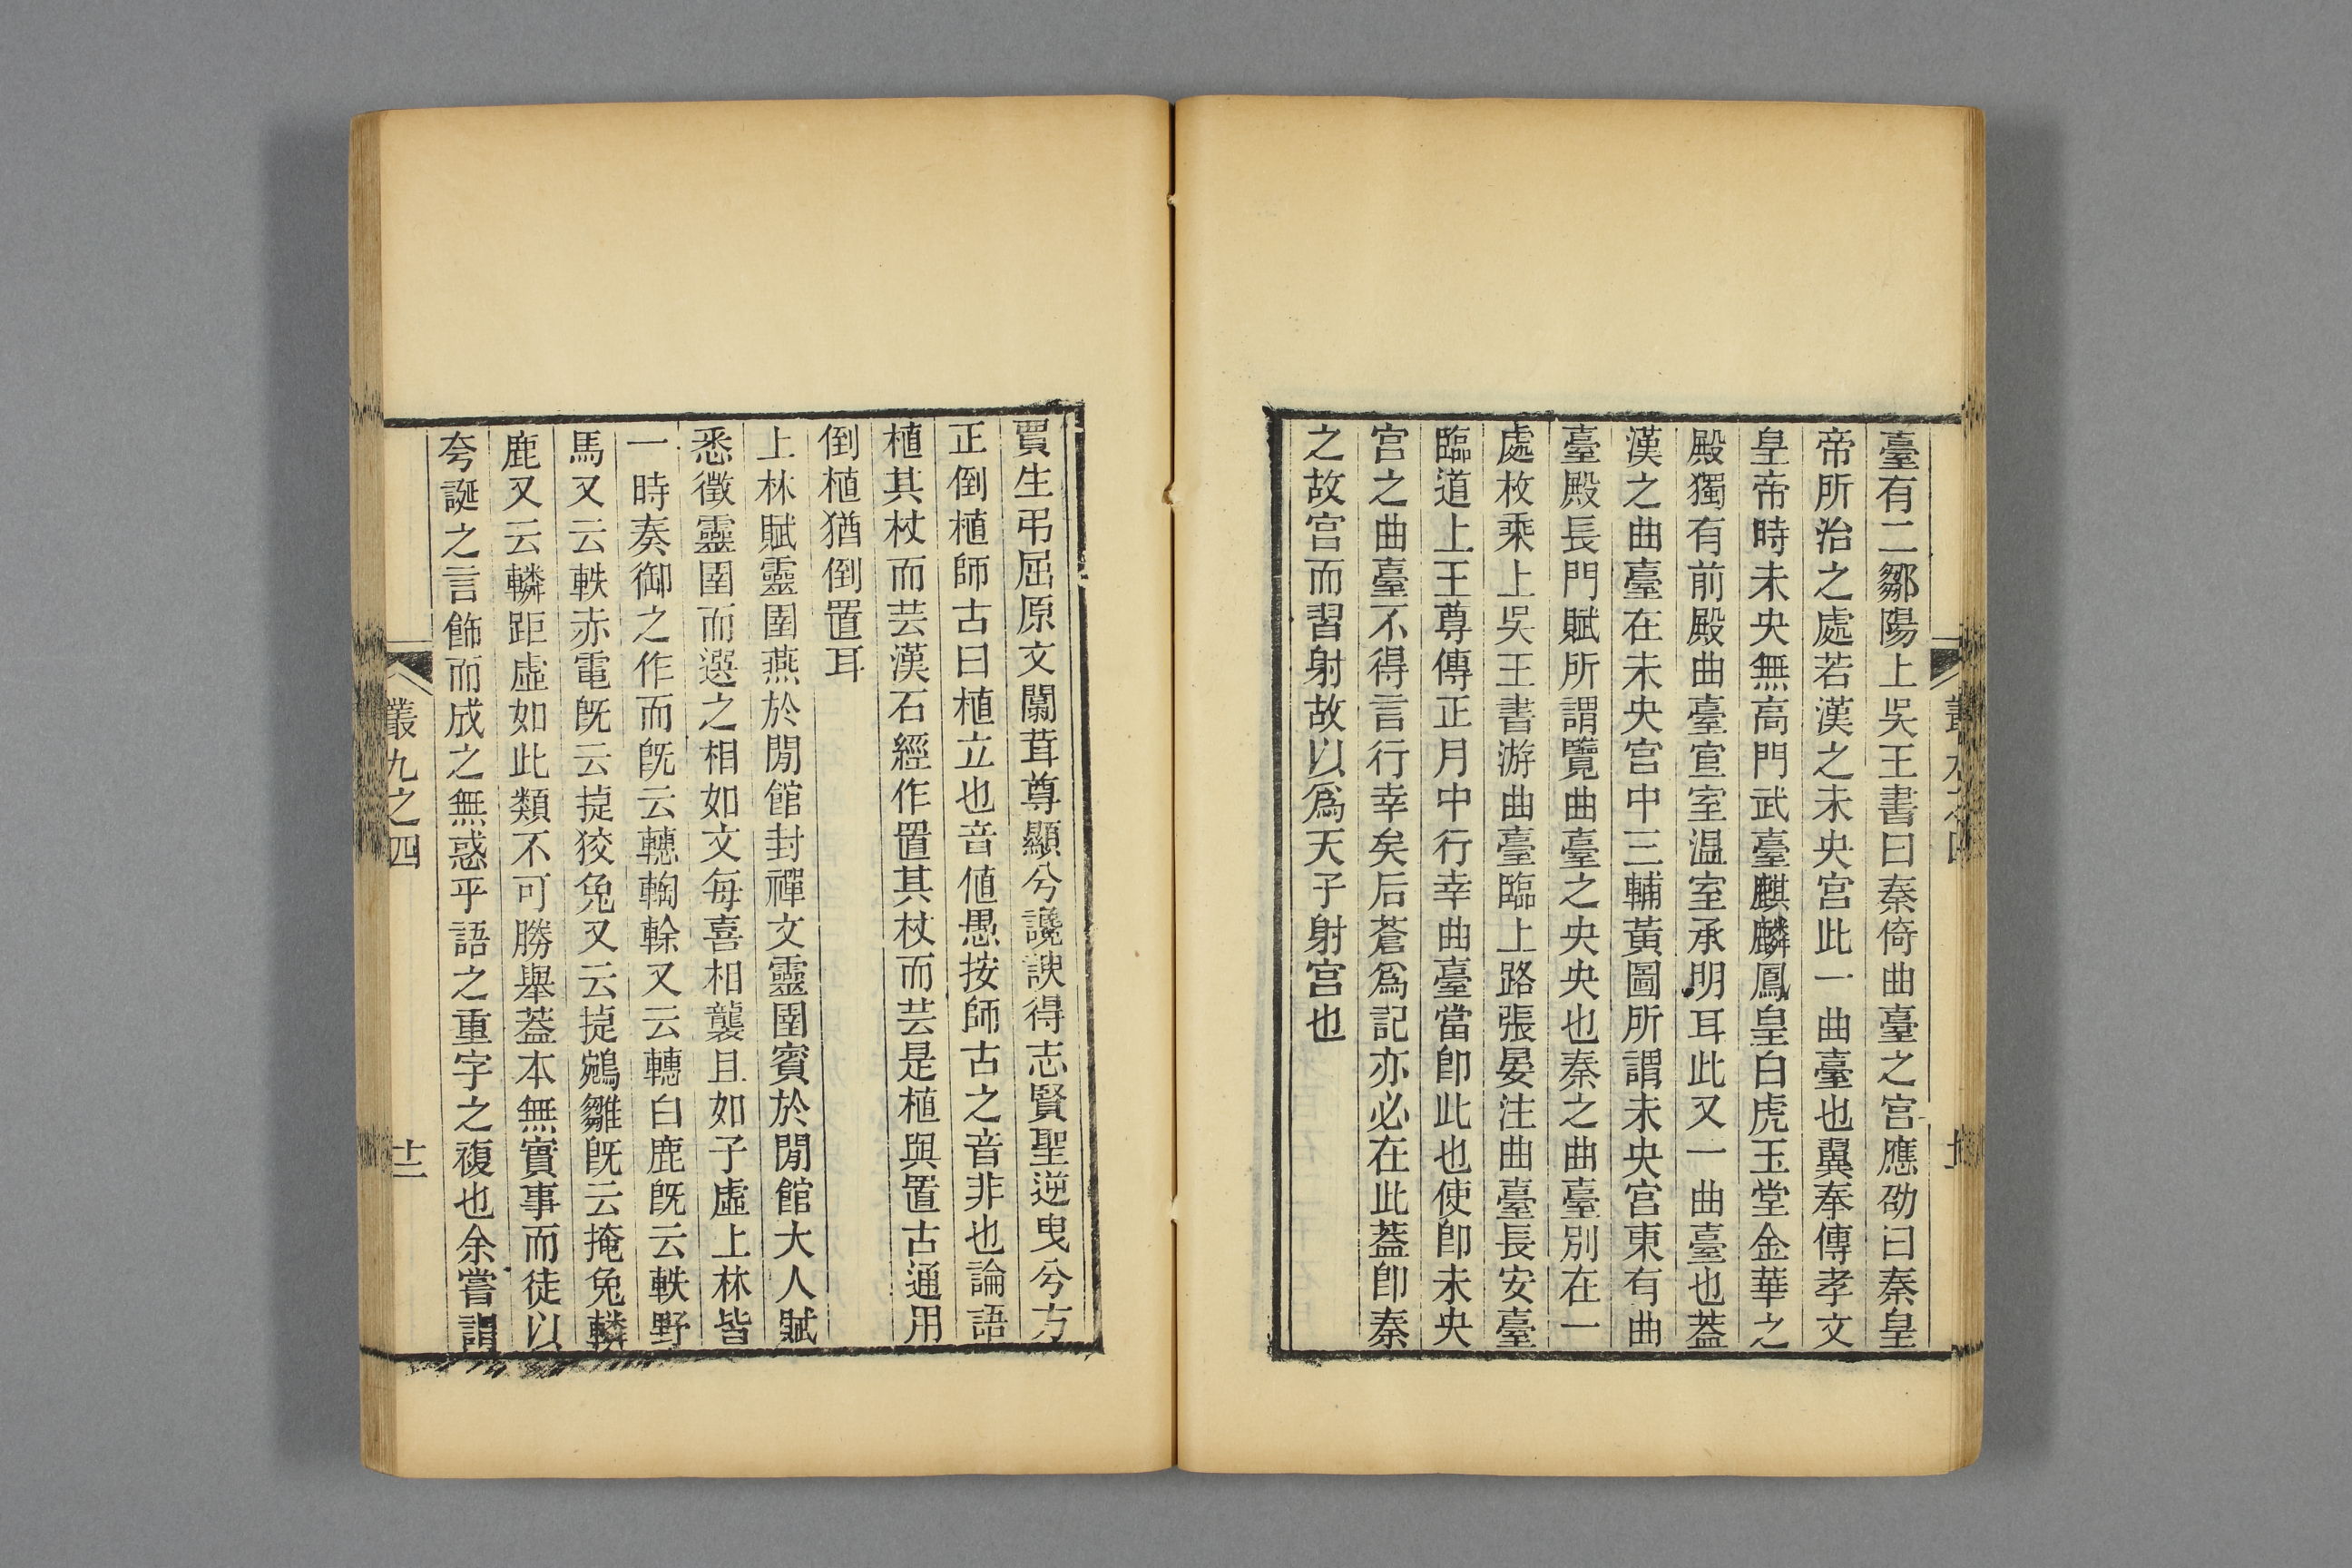 臺有二鄒陽上吳王書曰秦倚曲臺之宫應劭曰秦皇
帝所治之處若漢之未央宫此一曲臺也翼奉傳孝文
皇帝時未央無高門武臺麒麟鳳皇白虎玉堂金華之
殿獨有前殿曲臺宣室温室承明耳此又一曲臺也葢
漢之曲臺在未央宫中三輔黃圖所謂未央宫東有曲
臺殿長門賦所謂覽曲臺之央央也秦之曲臺別在一
處枚乘上吳王書游曲臺臨上路張晏注曲臺長安臺
臨道上王尊傳正月中行幸曲臺當卽此也使卽未央
宫之曲臺不得言行幸矣后蒼爲記亦必在此葢卽秦
之故宫而習射故以爲天子射宫也
賈生弔屈原文闒茸尊顯兮讒諛得志賢聖逆曳兮方
正倒植師古曰植立也音値愚按師古之音非也論語
植其杖而芸漢石經作置其杖而芸是植與置古通用
倒植猶倒置耳
上林賦靈圉燕於閒館封禪文靈圉賓於閒館大人賦
悉徵靈圉而選之相如文每喜相襲且如子虛上林皆
一時奏御之作而旣云轊騊駼又云轊白鹿旣云軼野
馬又云軼赤電旣云㨗狡兔又云㨗鵷雛旣云掩兔轔
鹿又云轔距虛如此類不可勝舉葢本無實事而徒以
夸誕之言飾而成之無惑乎語之重字之複也余嘗謂
叢九之四
十二